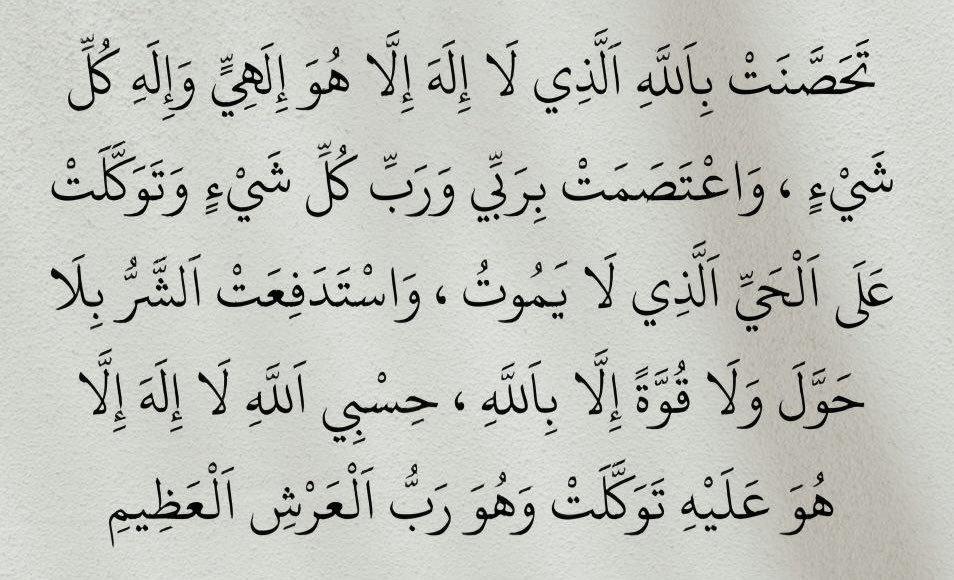 تَّحَصَّنَتْ بِاَللَّهِ اَلَّذِي لَا إِلَهَ إِلَّا هُوَ إِلَهِيٍّ وَإِلَهِ كُلِّ
شَيْءٍ ، وَاعْتَصَمَتْ بِرَبِّي وَرَبِّ كُلِّ شَيْءٍ وَتَوَكَّلَتْ
عَلَى اَلْحَيِّ اَلَّذِي لَا يَمُوتُ ، وَاسْتَدَفِعَتْ اَلشَّرُّ بِلَا
حَوَّلَ وَلَا قُوَّةً إِلَّا بِاَللَّهِ ، حِسْبِي اَللَّهِ لَا إِلَهَ إِلَّا
هُوَ عَلَيْهِ تَوَكَّلَتْ وَهُوَ رَبُّ اَلْعَرْشِ اَلْعَظِيمِ